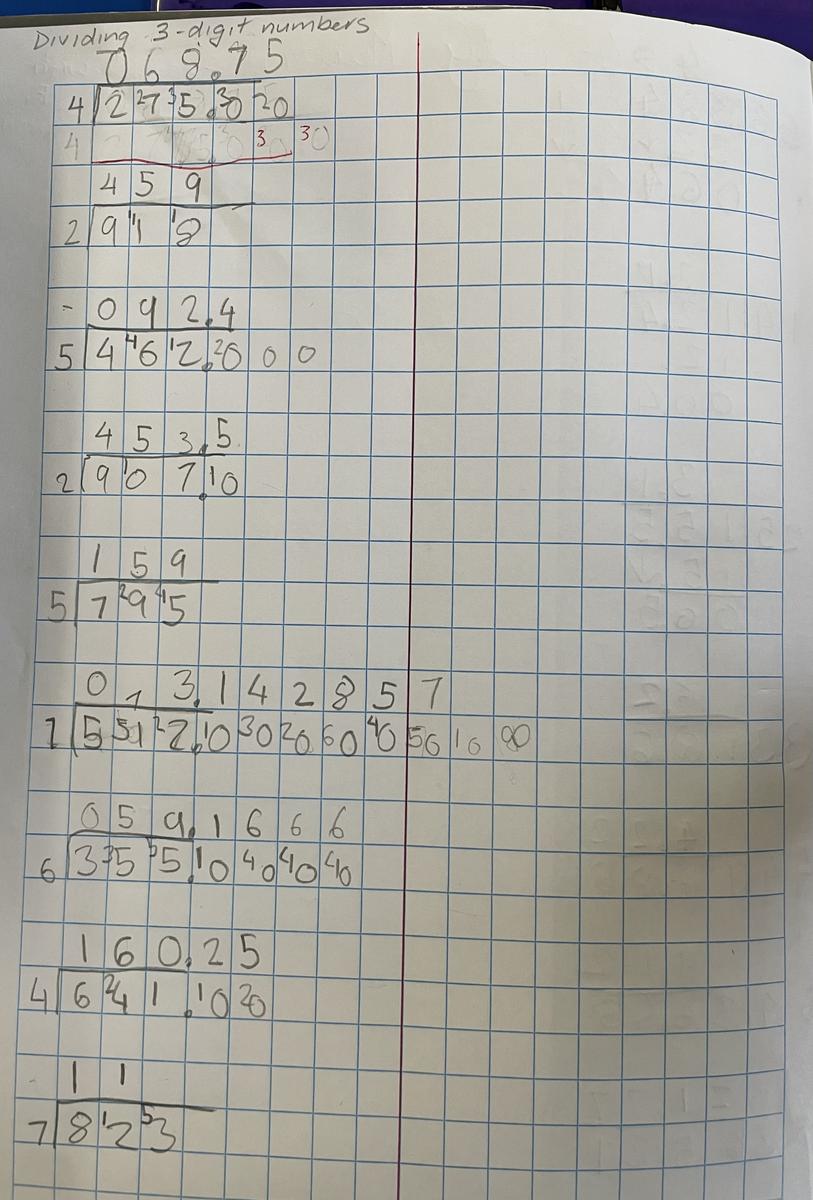 Dividing 3-digit numbers
0 6 8 . 7 5
4 2 27 35 . 30 20
4 30 30
4 5 9
2 9 11 18
- 0 9 2 . 4
5 4 46 12 . 20 0 0
4 5 3 . 5
2 9 10 7 . 10
1 5 9
5 7 29 45
0 7 3 . 1 4 2 8 5 7
7 5 51 22 . 10 30 20 60 40 50 10 30
0 5 9 . 1 6 6 6
6 3 35 55 . 10 40 40 40
1 6 0 . 2 5
4 6 24 1 . 10 20
1 1
7 8 12 53